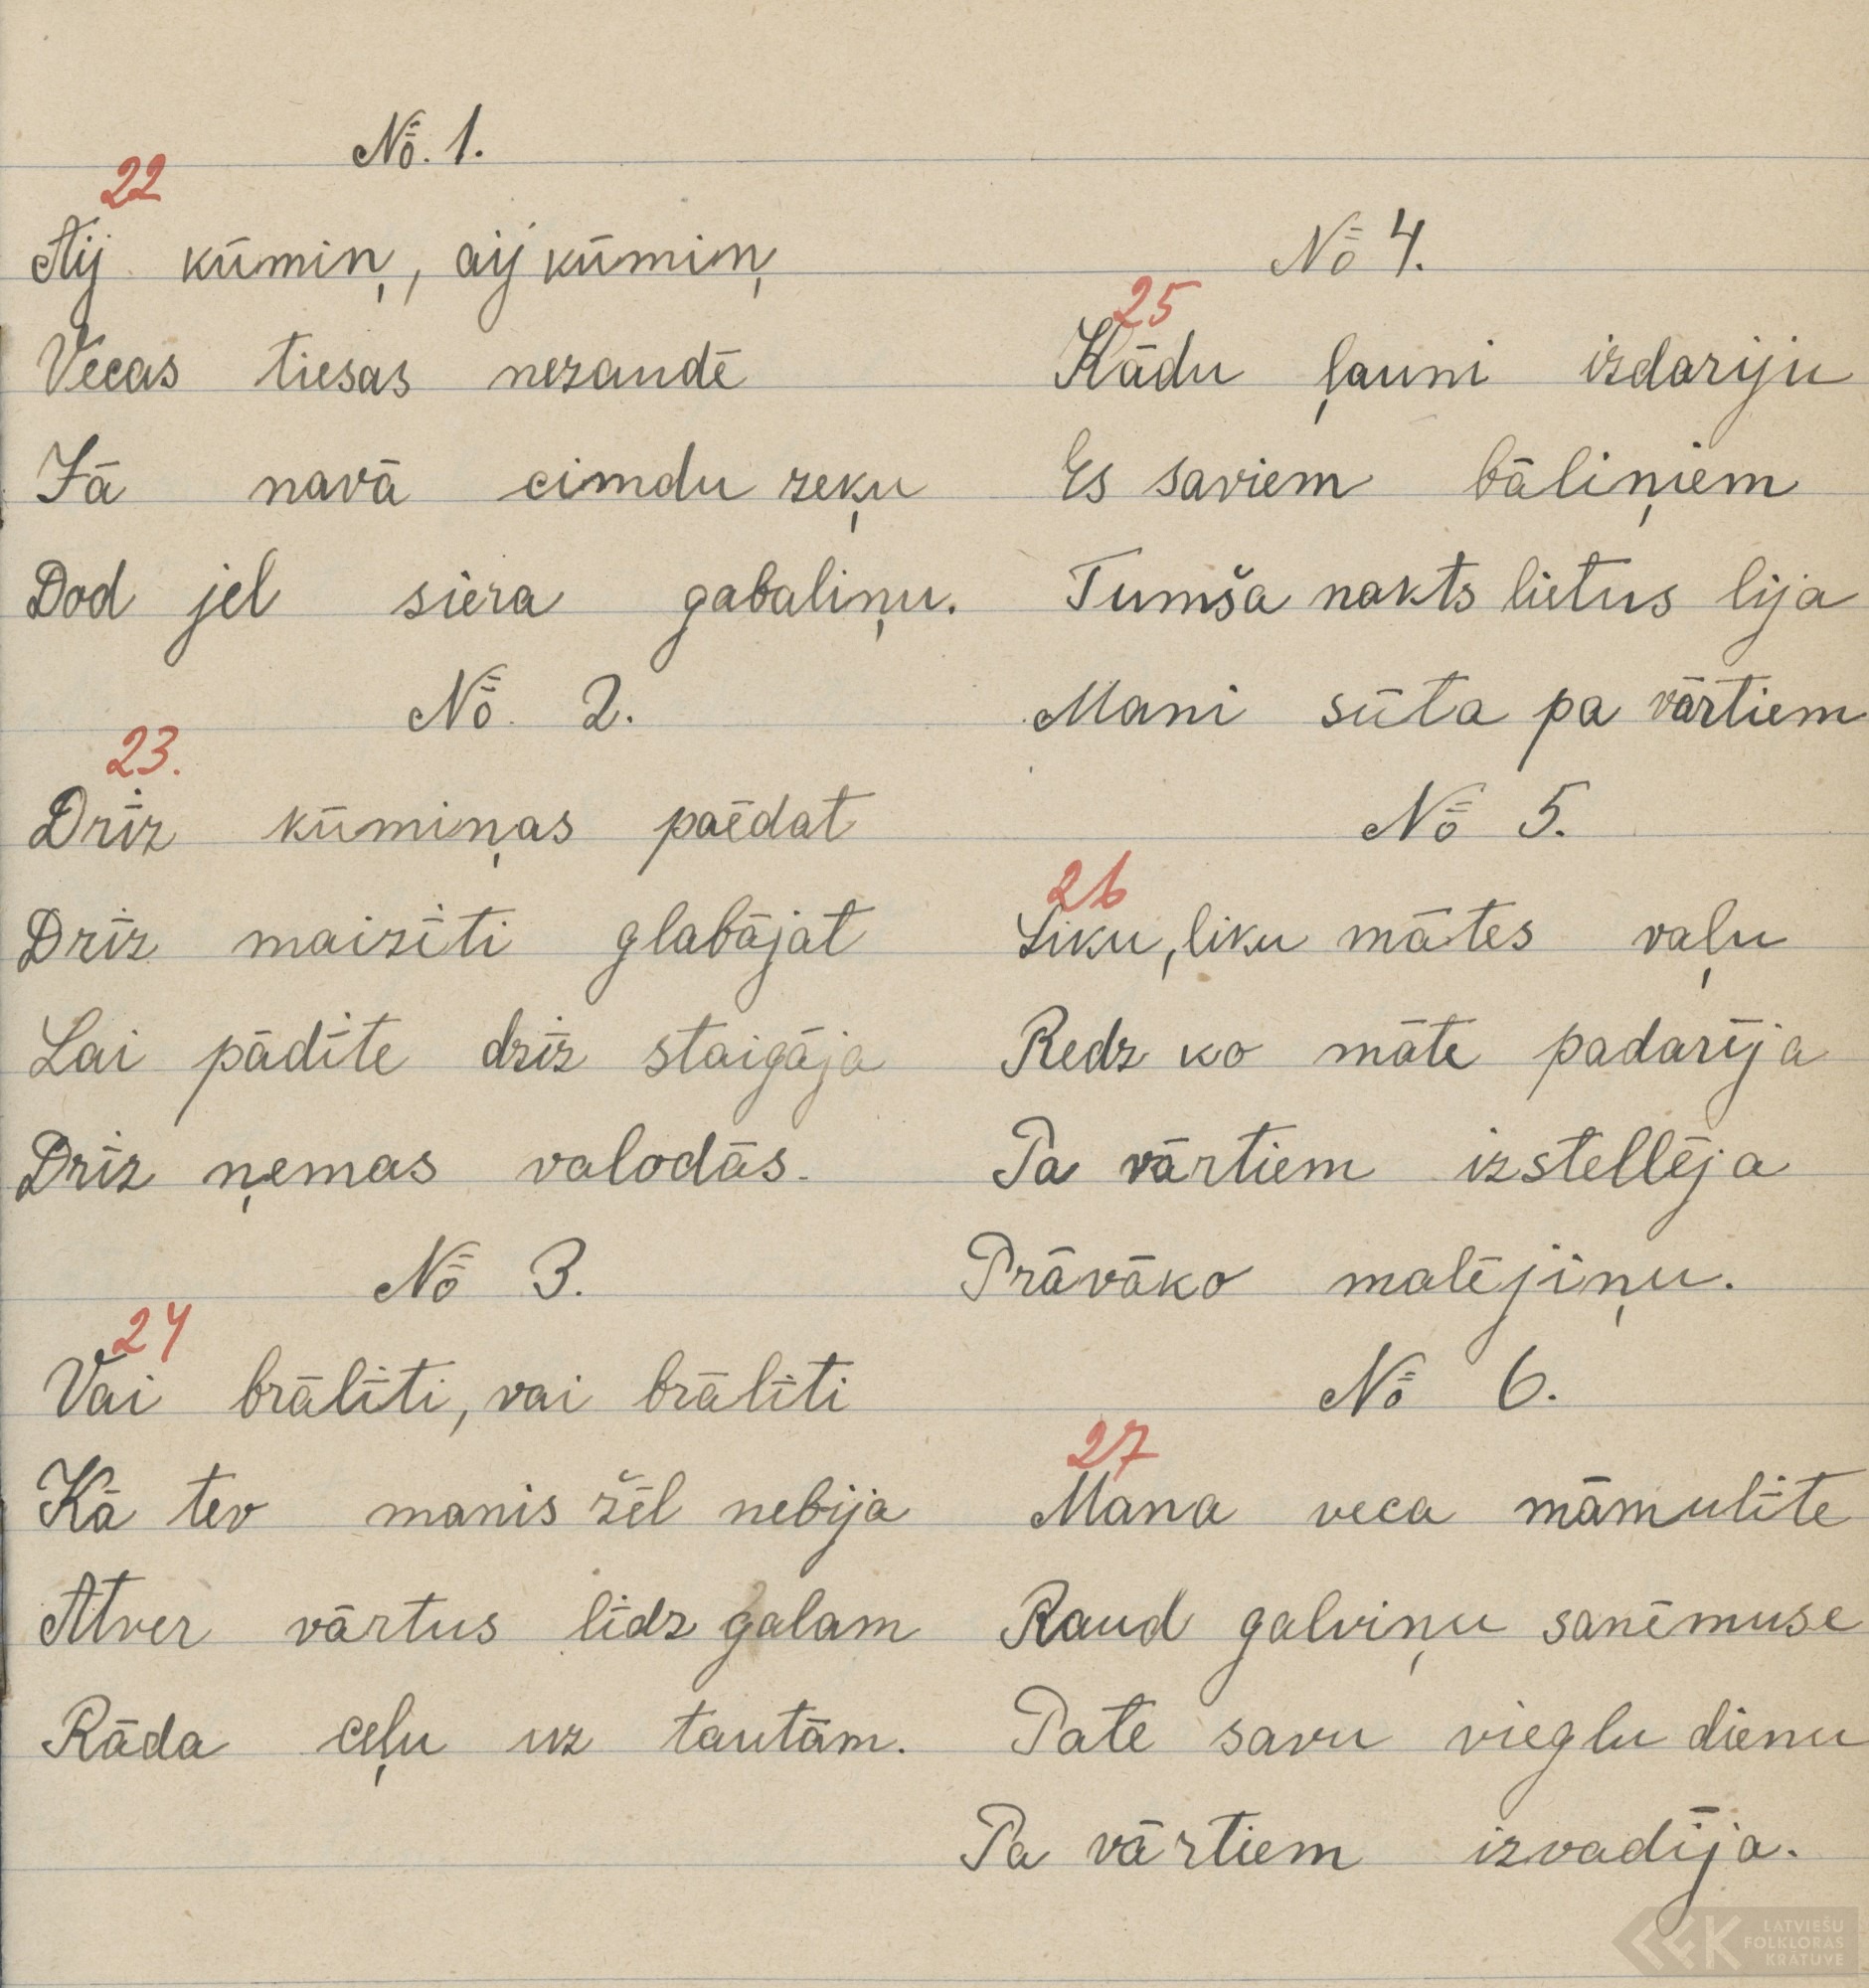 No. 1.
22
Aij kūmiņ, aij kūmiņ
Vecas tiesas nezaudē
Jā navā cimdu zeķu
Dod jel siera gabaliņu.
No. 2.
23.
Drīz kūmiņas paēdat
Drīz maizīti glabājat
Lai pādīte drīz staigāja
Drīz ņemas valodās.
No 3.
24
Vai brālīti, vai brālīti
Kā tev manis žēl nebija
Atver vārtus līdz galam
Rāda ceļu uz tautām.
No 4.
25
Kādu ļauni izdariju
Es saviem bāliņiem
Tumša nakts lietus lija
Mani sūta pa vārtiem
No 5.
26
Liku, liku mātes vaļu
Redz ko māte padarīja
Pa vārtiem izstellēja
Prāvāko malējiņu.
No 6.
27
Mana veca māmulīte
Raud galviņu sanēmuse
Pate savu vieglu dienu
Pa vārtiem izvadīja.
LATVIEŠU
FOLKLORAS
KRĀTUVE